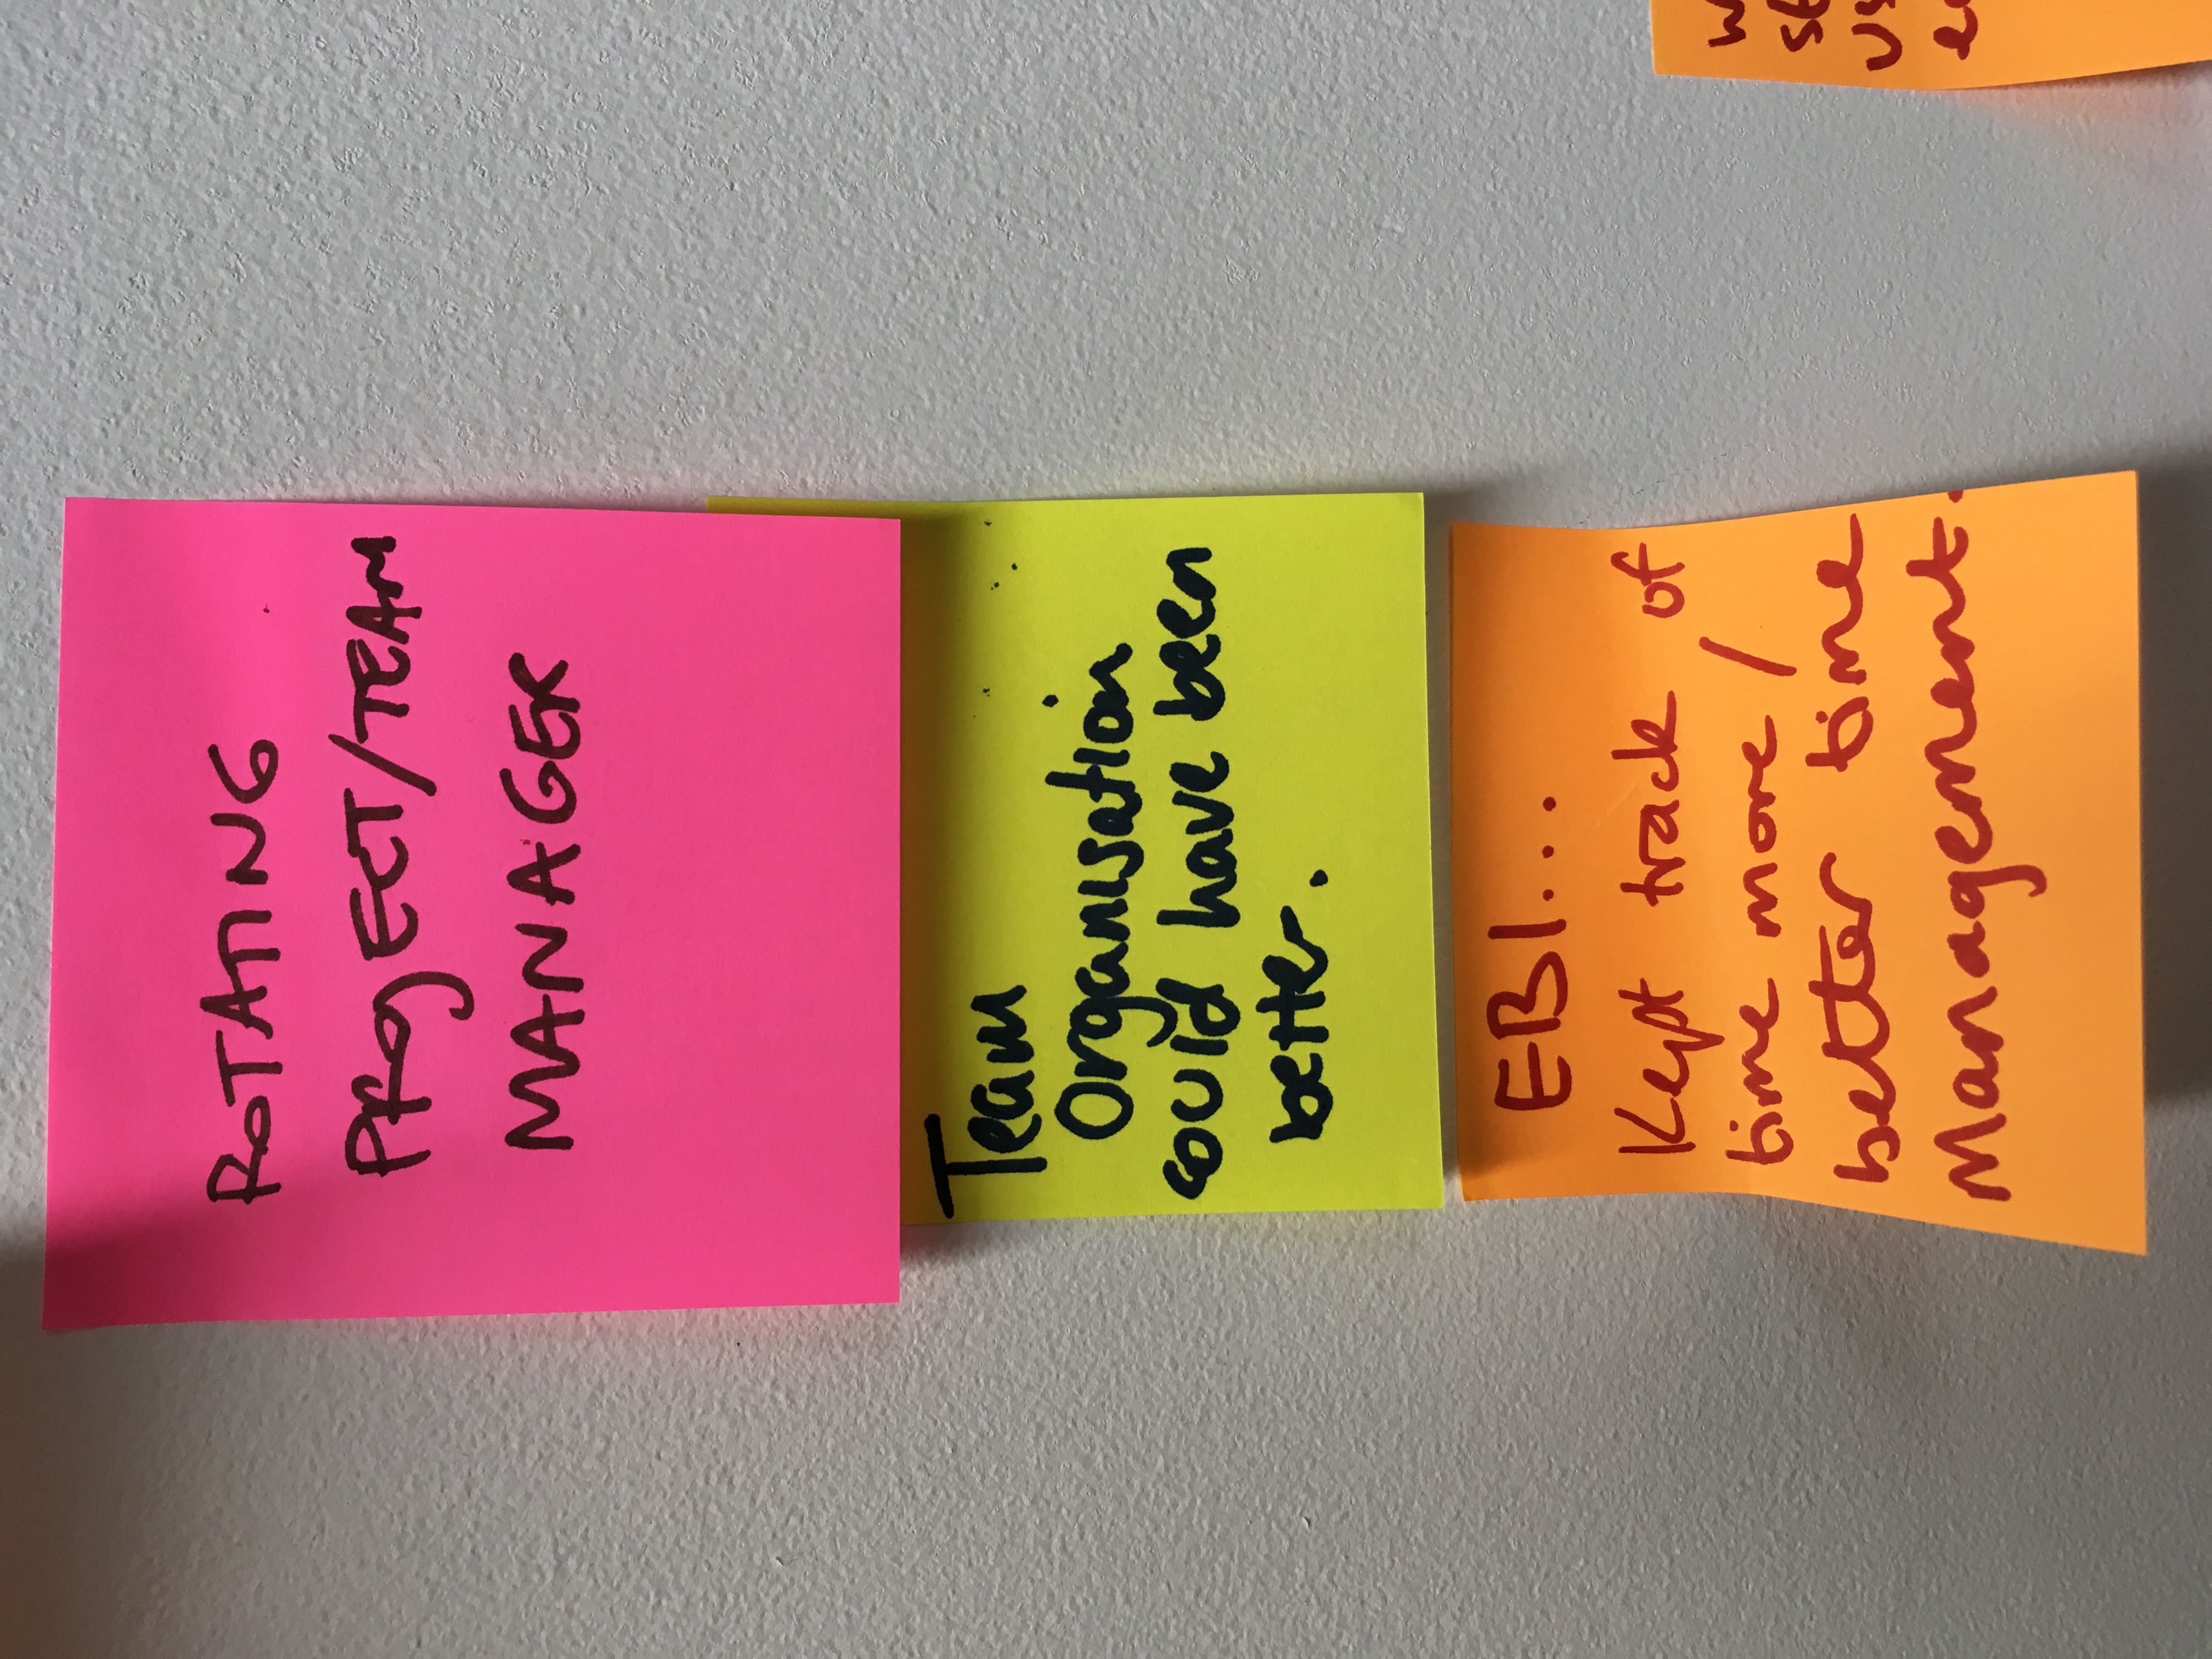 ROTATING
PROJECT/TEAM
MANAGER
Team
Organisation
could have been
better.
EBI...
Kept track of
time more /
better time
Management.